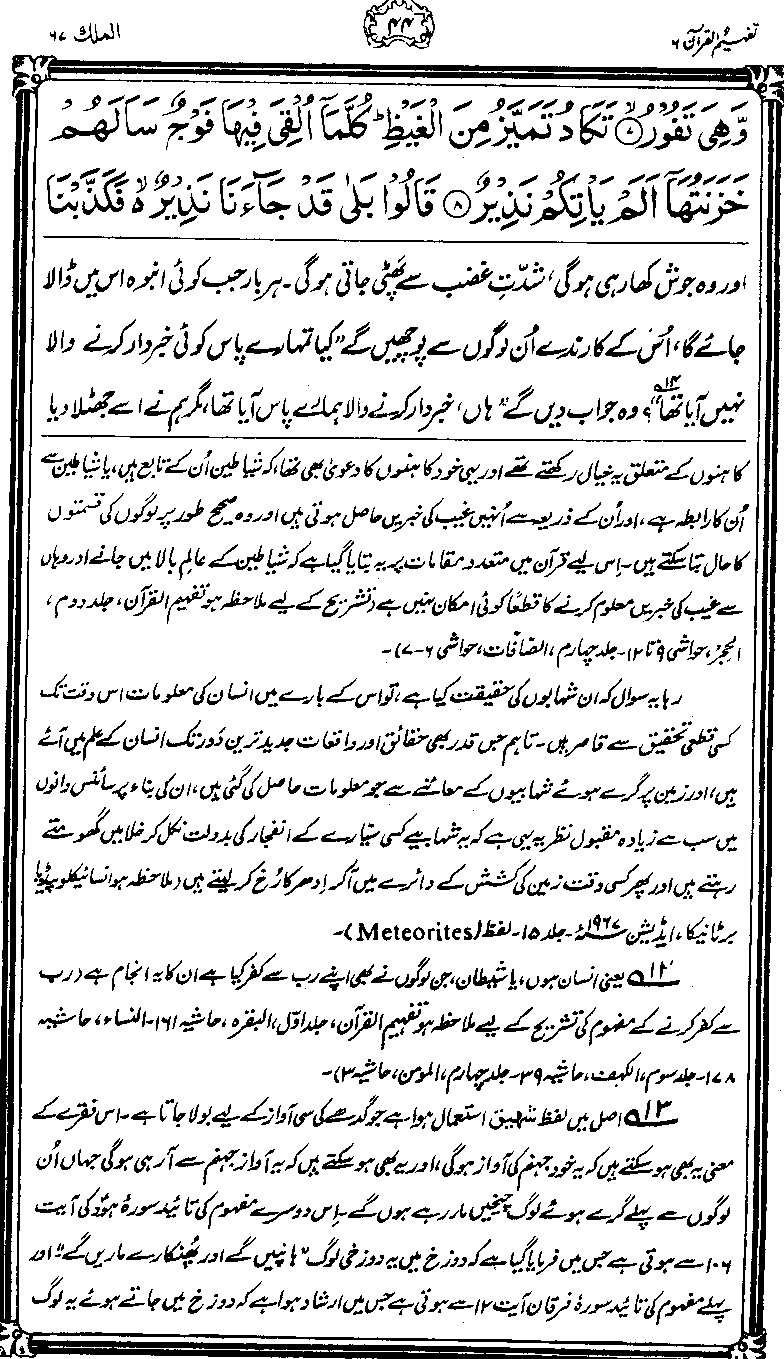 تفہیم القرآن ۶
۴۴
الملک ۶۷
وَّهِىَ تَفُوْرُ ۙ‏﴿۷﴾ تَكَادُ تَمَيَّزُ مِنَ الْغَيْظِ‌ؕ كُلَّمَاۤ اُلْقِىَ فِيْهَا فَوْجٌ سَاَلَهُمْ
خَزَنَتُهَاۤ اَلَمْ يَاْتِكُمْ نَذِيْرٌ‏ ﴿۸﴾ قَالُوْا بَلٰى قَدْ جَآءَنَا نَذِيْرٌ ۙ فَكَذَّبْنَا
اور وہ جوش کھا رہی ہو گی، شدّتِ غضب سے پھٹی جاتی ہو گی۔ ہر بار جب کوئی انبوہ اس میں ڈالا
جائے گا، اُس کے کارندے اُن لوگوں سے پوچھیں گے ”کیا تمہارے پاس کوئی خبردار کرنے والا
نہیں آیا تھا“؟۱۴ وہ جواب دیں گے ”ہاں، خبردار کرنے والا ہمارے پاس آیا تھا، مگر ہم نے اسے جھٹلا دیا
کاہنوں کے متعلق یہ خیال رکھتے تھے اور یہی خود کاہنوں کا دعویٰ بھی تھا، کہ شیاطین اُن کے تابع ہیں، یا شیاطین سے
اُن کا رابطہ ہے، اور اُن کے ذریعہ سے اُنہیں غیب کی خبریں حاصل ہوتی ہیں اور وہ صحیح طور پر لوگوں کی قسمتوں
کا حال بتا سکتے ہیں۔ اِس لیے قرآن میں متعدد مقامات پر یہ بتایا گیا ہے کہ شیاطین کے عالمِ بالا میں جانے اور وہاں
سے غیب کی خبریں معلوم کرنے کا قطعاً کوئی امکان نہیں ہے (تشریح کے لیے ملاحظہ ہو تفہیم القرآن، جلد دوم،
الحجر، حواشی ۹ تا ۱۲۔ جلد چہارم، الصّافات، حواشی ۶-۷)۔
رہا یہ سوال کہ ان شہابوں کی حقیقت کیا ہے، تو اس کے بارے میں انسان کی معلومات اس وقت تک
کسی قطعی تحقیق سے قاصر ہیں۔ تاہم جس قدر بھی حقائق اور واقعات جدید ترین دَور تک انسان کے علم میں آئے
ہیں، اور زمین پر گرے ہوئے شہابیوں کے معائنے سے جو معلومات حاصل کی گئی ہیں، ان کی بناء پر سائنس دانوں
میں سب سے زیادہ مقبول نظریہ یہی ہے کہ یہ شہابیے کسی سیّارے کے انفجار کی بدولت نکل کر خلا میں گھومتے
رہتے ہیں اور پھر کسی وقت زمین کی کشش کے دائرے میں آ کر اِدھر کا رُخ کر لیتے ہیں (ملاحظہ ہو انسائیکلوپیڈیا
برٹانیکا، ایڈیشن ۱۹۶۷ء۔ جلد ۱۵۔ لفظ (Meteorites)۔
۱۲ یعنی انسان ہوں، یا شیطان، جن لوگوں نے بھی اپنے رب سے کفر کیا ہے ان کا یہ انجام ہے (رب
سے کفر کرنے کے مفہوم کی تشریح کے لیے ملاحظہ ہو تفہیم القرآن، جلد اوّل، البقرہ، حاشیہ ۱۶۱۔ النساء، حاشیہ
۱۷۸۔ جلد سوم، الکہف، حاشیہ ۳۹۔ جلد چہارم، المومن، حاشیہ ۳)۔
۱۳ اصل میں لفظ شہیق استعمال ہوا ہے جو گدھے کی سی آواز کے لیے بولا جاتا ہے۔ اس فقرے کے
معنی یہ بھی ہو سکتے ہیں کہ یہ خود جہنم کی آواز ہو گی، اور یہ بھی ہو سکتے ہیں کہ یہ آواز جہنم سے آ رہی ہو گی جہاں اُن
لوگوں سے پہلے گرے ہوئے لوگ چیخیں مار رہے ہوں گے۔ اِس دوسرے مفہوم کی تائید سورۂ ہود کی آیت
۱۰۶ سے ہوتی ہے جس میں فرمایا گیا ہے کہ دوزخ میں یہ دوزخی لوگ ”ہانپیں گے اور پُھنکارے ماریں گے“ اور
پہلے مفہوم کی تائید سورۂ فرقان آیت ۱۲ سے ہوتی ہے جس میں ارشاد ہوا ہے کہ دوزخ میں جاتے ہوئے یہ لوگ